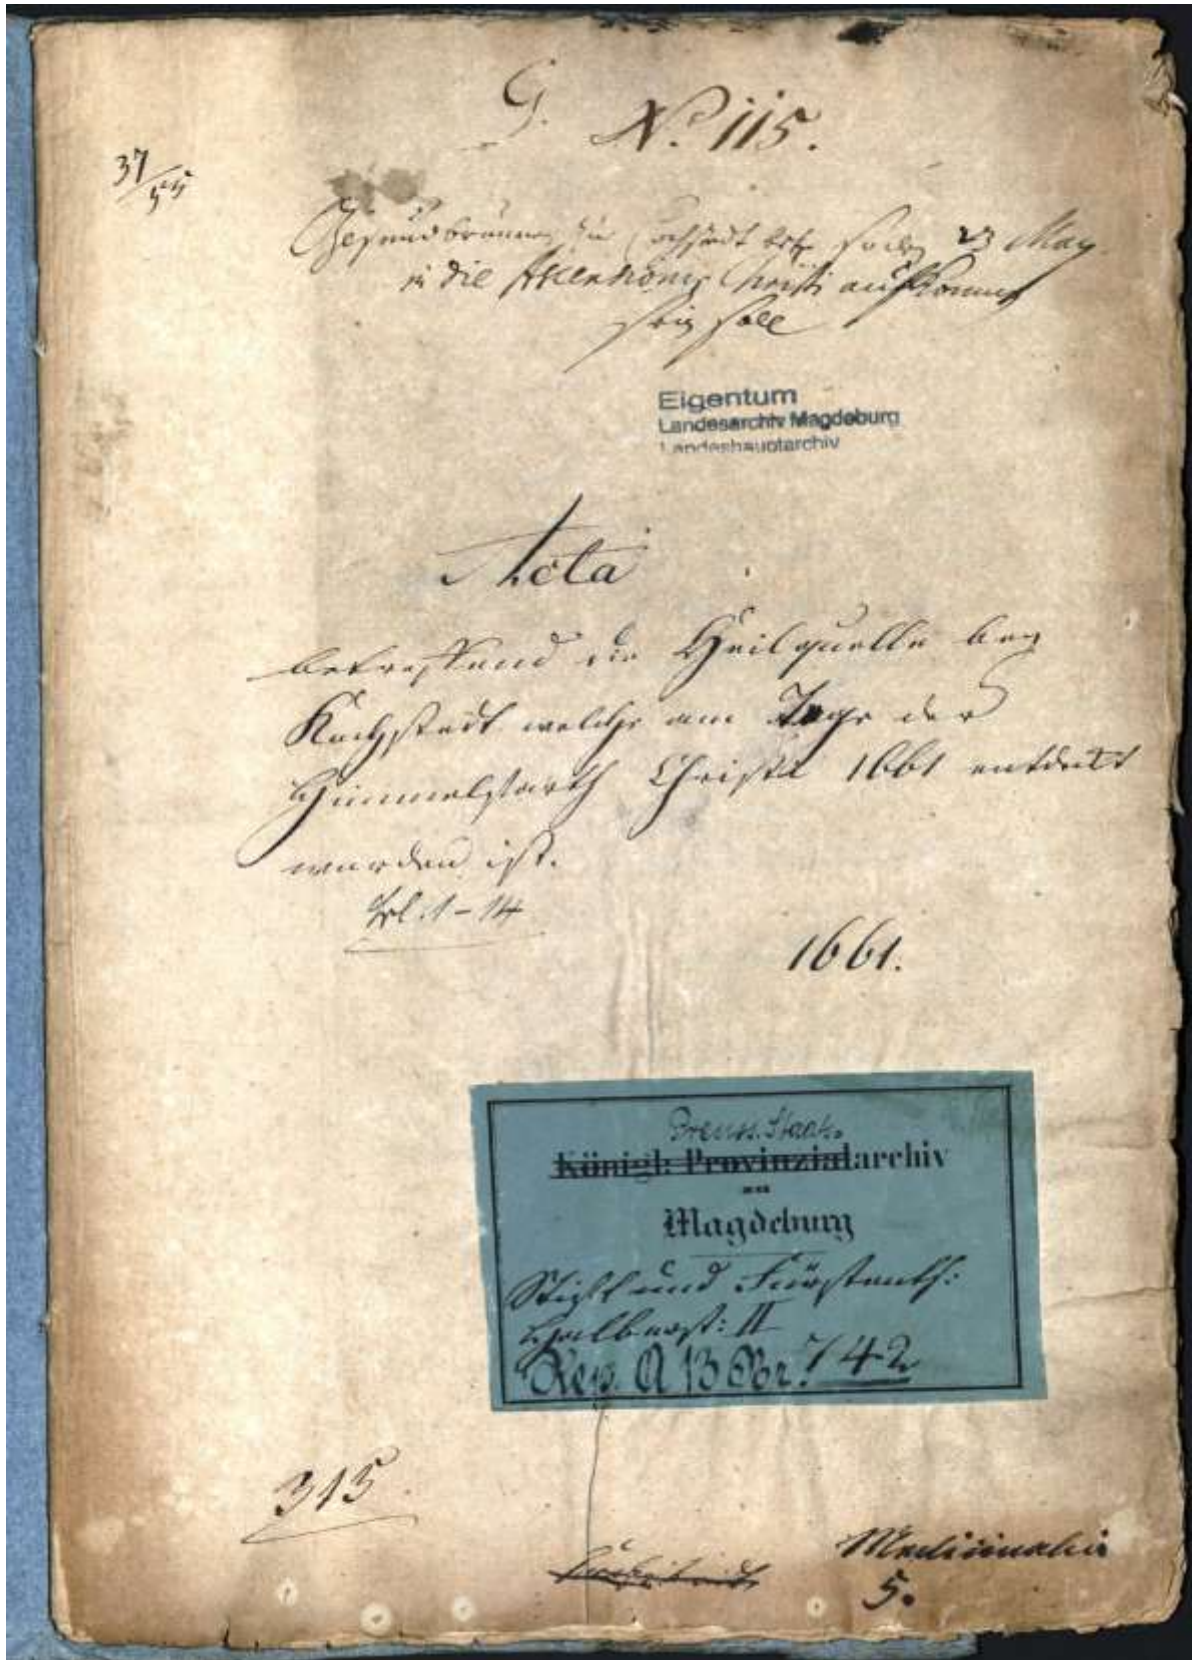 G. No. 115.
37/55
Gesundbrunnen zu Cochstedt 23 May
in die Ascensionis Christi aufkommen
sein soll
Eigentum
Landesarchiv Magdeburg
Landeshauptarchiv
Acta
betreffend die Heilquelle bey
Kochstedt welche am Tage der
Himmelfarth Christi 1661 entdeckt
worden ist.
Bl. 1-14
1661.
Preuss. Staats-
Königl. Provinzialarchiv
zu
Magdeburg
Stift und Fürstenth:
Halberst: II
Rep. A 13 Nr. 742
315.
Medicinalia
5.